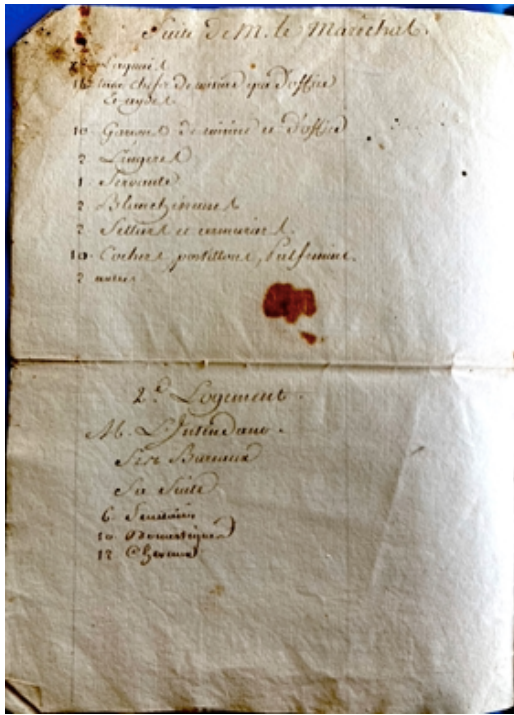 Suite de M. le Maréchal.
Laquais
16 tant chefs de cuisine que d'office
et aydes
10 Garçons de cuisine et d'office
2 Lingeres
1 Servante
2 Blanchisseuses
2 Selliers et
10 Cochers, postillons, Palfreniers
2
2.d Logement.
M. L'Intendant.
Ses Bureaux
Sa Suite
6 Secretaires
10 Domestiques
12 Chevaux